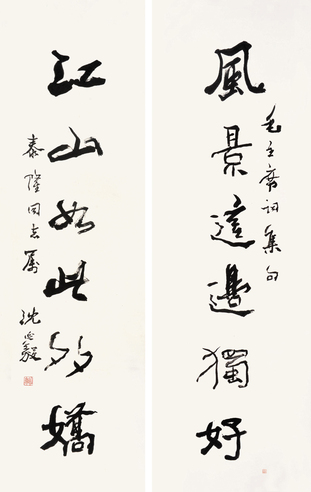 毛主席詞集句
風景這邊獨好
江山如此多嬌
泰隆同志屬
沈延毅